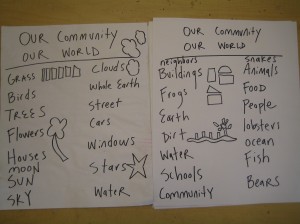 OUR COMMUNITY
OUR WORLD
GRASS
Birds
TREES
Flowers
Houses
moon
SUN
SKY
Clouds
Whole Earth
Street
Cars
Windows
Stars
Water
OUR COMMUNITY
OUR WORLD
neighbors
Buildings
Frogs
Earth
Dirt
Water
Schools
Community
snakes
Animals
FOOD
People
lobsters
ocean
Fish
Bears